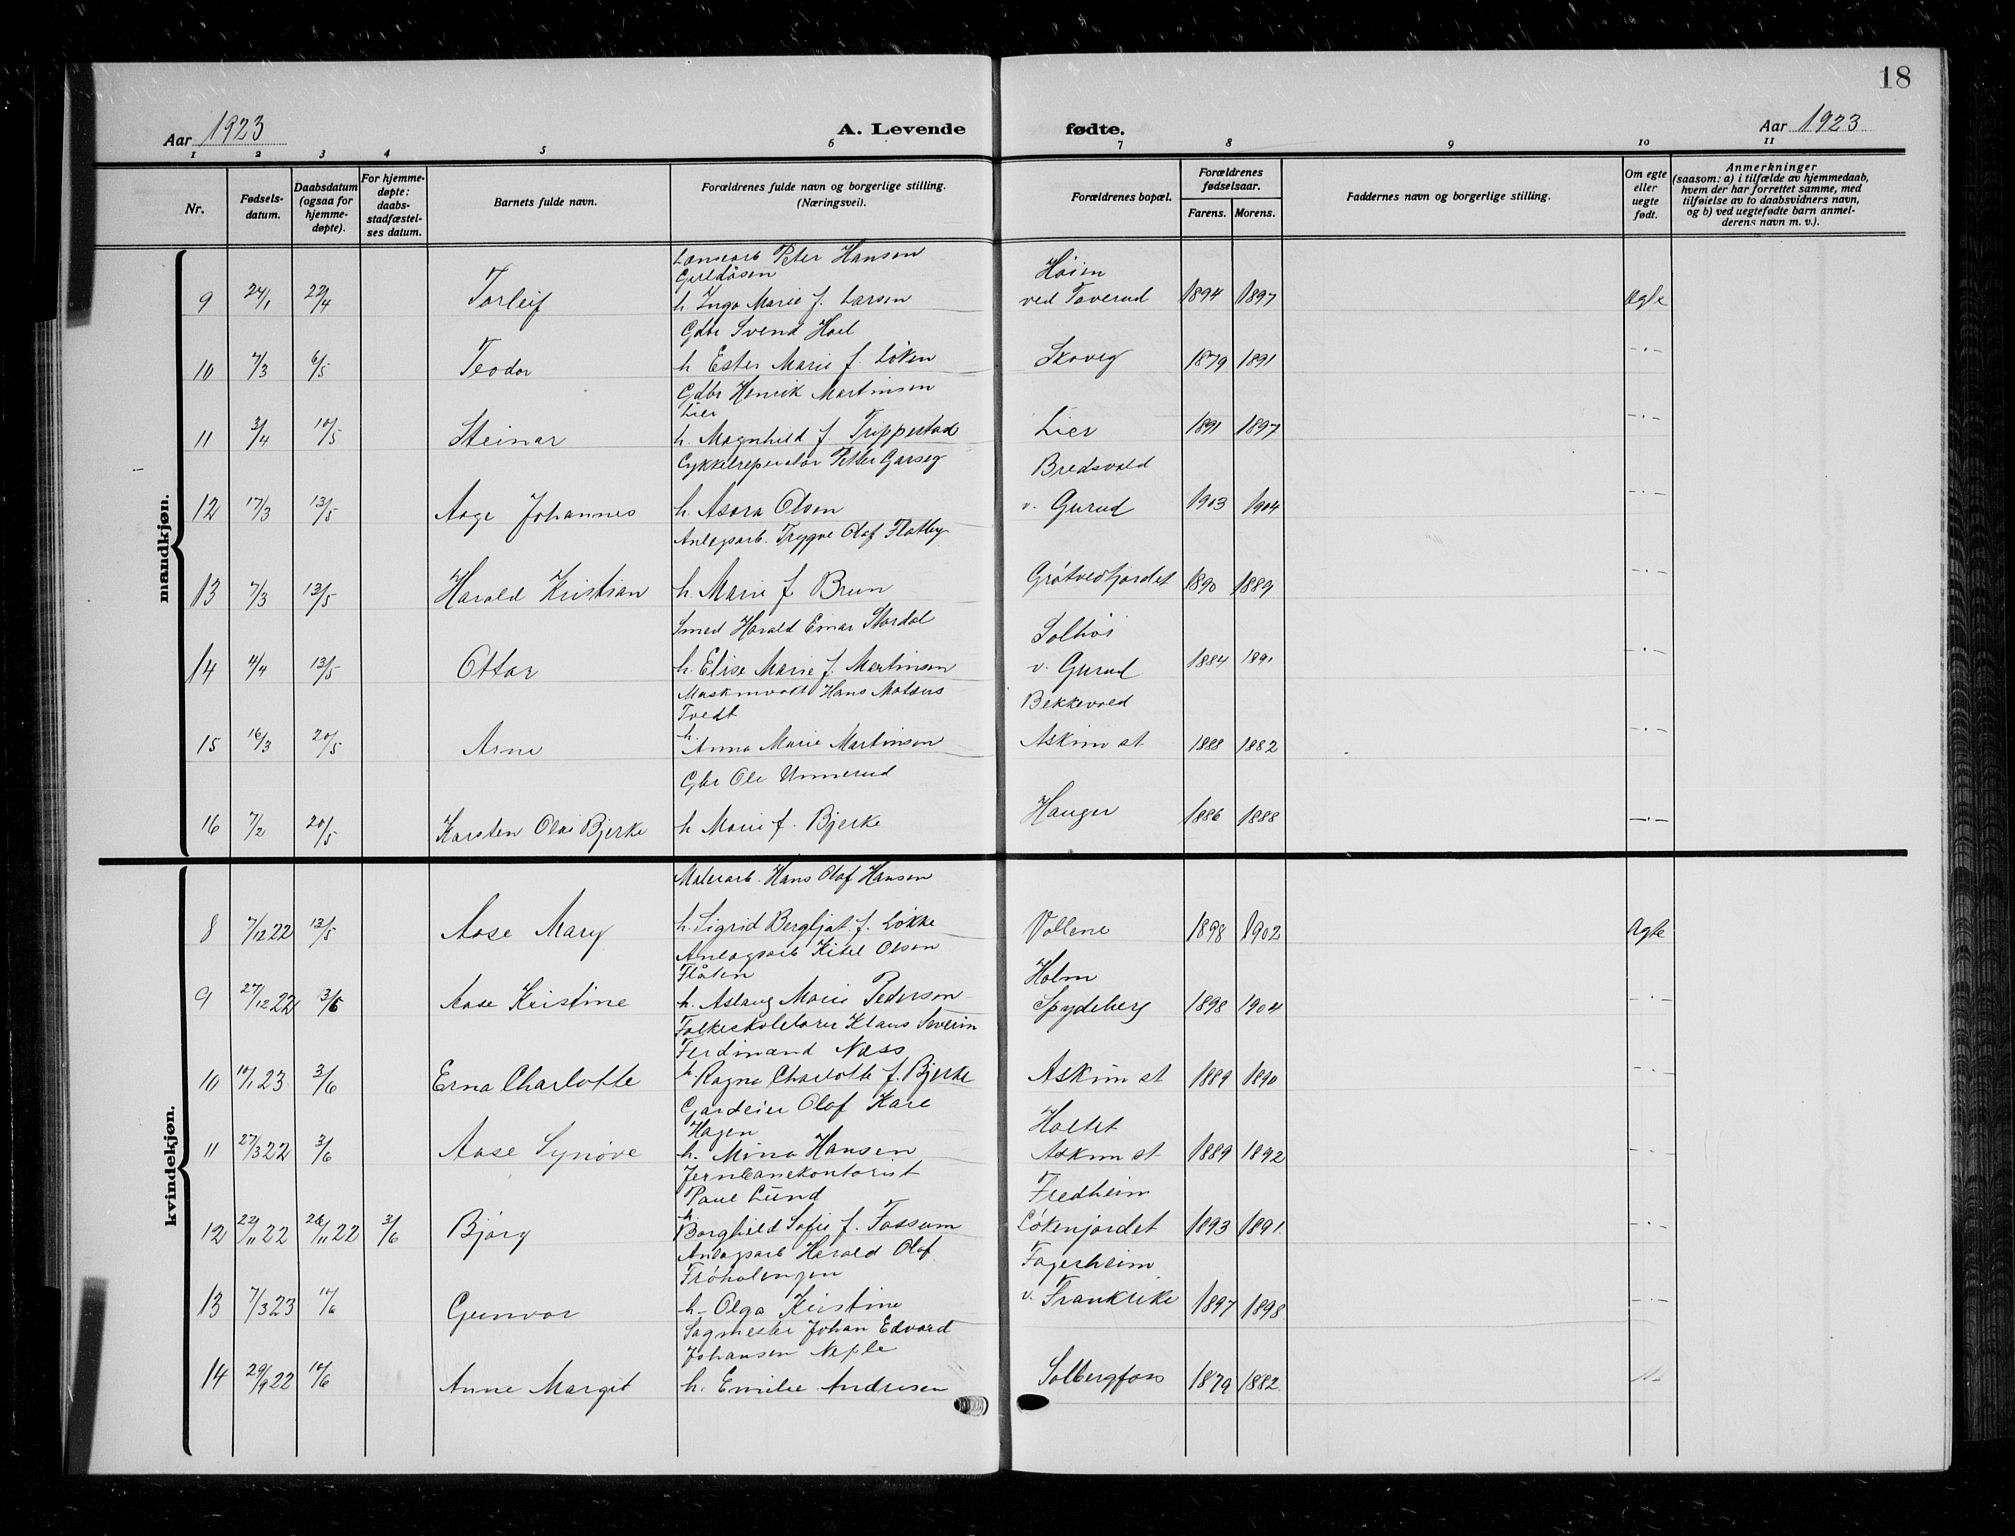 18
Aar 1923 A. Levende fødte. Aar 1923
1 2 3 4 5 6 7 8 9 10 11
Nr.
Fødsels-
datum.
Daabsdatum
(ogsaa for
hjemme-
døpte).
For hjemme-
døpte:
daabs-
stadfæstel-
ses datum.
Barnets fulde navn.
Forældrenes fulde navn og borgerlige stilling.
(Næringsvei).
Forældrenes bopæl.
Forældrenes
fødselsaar.
Farens. Morens.
Faddernes navn og borgerlige stilling.
Om egte
eller
uegte
født.
Anmerkninger
(saasom: a) i tilfælde av hjemmedaab,
hvem der har forrettet samme, med
tilføielse av to daabsvidners navn,
og b) ved uegtefødte barn anmel-
derens navn m. v.).
mandkjøn.
Peter Hansen
Høien
9 24/1 22/4 Torleif h. Inga Marie f. Larsen ved Taverud 1894 1897 Ægte
Gdbr Svend Hoel
10 7/3 6/5 Teodor h Ester Marie f. Løken Skoveg 1879 1891 -·-
Gdbr Henrik Martinsen
Lier
11 3/4 10/5 Steinar h. Magnhild f Trippestad Lier 1891 1897 -·-
Cykkelreperatør Petter Garseg Bredsvold
12 17/3 13/5 Aage Johannes h. Asora Olsen v. Gurud 1903 1904 -·-
Anlægsarb. Trygve Olaf Flatby
13 7/3 13/5 Harald Kristian h Marie f Brun Grøtvedtjordet 1890 1889 -·-
Smed Harald Einar Stordal Solhøi
14 11/4 13/5 Ottar h. Elise Marie f Martinsen v. Gurud 1884 1891 -·-
Hans
Tvedt Bekkevold
15 16/3 20/5 Arne h. Anna Marie Martinsen Askim st 1888 1882 -·-
Gbr Ole Unnerud
16 7/2 20/5 Karsten Olai Bjerke h Marie f. Bjerke Hauger 1886 1888 -·-
kvindekjøn.
Malerarb. Hans Olaf Hansen
8 7/12 22 13/5 Aase Mary h. Sigrid Bergljot f. Løkke Vollene 1898 1902 Ægte
Anlægsarb Kitel Olsen
Flåten Holm
9 27/12 22 3/6 Aase Kristine h. Aslaug Marie Pedersen Spydeberg 1898 1904 -·-
Folkeskolelærer Klaus Severin
Ferdinand Næss
10 10/1 23 3/6 Erna Charlotte h. Ragna Charlotte f. Bjerke Askim st 1889 1890 -·-
Gardeier Olaf Kare
Hagen Holtet
11 27/3 22 3/6 Aase Synøve h. Mina Hansen Askim st 1889 1892 -·-
Jernbanekontorist
Paul Lund Fredheim
12 22/11 22 26/11 22 3/6 Bjørg h. Borghild Sofie f. Fossum Løkenjordet 1893 1891 -·-
Anlægsarb Harald Olaf
Frøholengen Fagerheim
13 7/3 23 Gunvor h. Olga Kristine v. Frankrike 1897 1898 -·-
Sagmester Johan Edvard
Johansen Næple
14 29/9 22 10/6 Anne Margit h. Emilie Andresen Solbergfoss 1879 1882